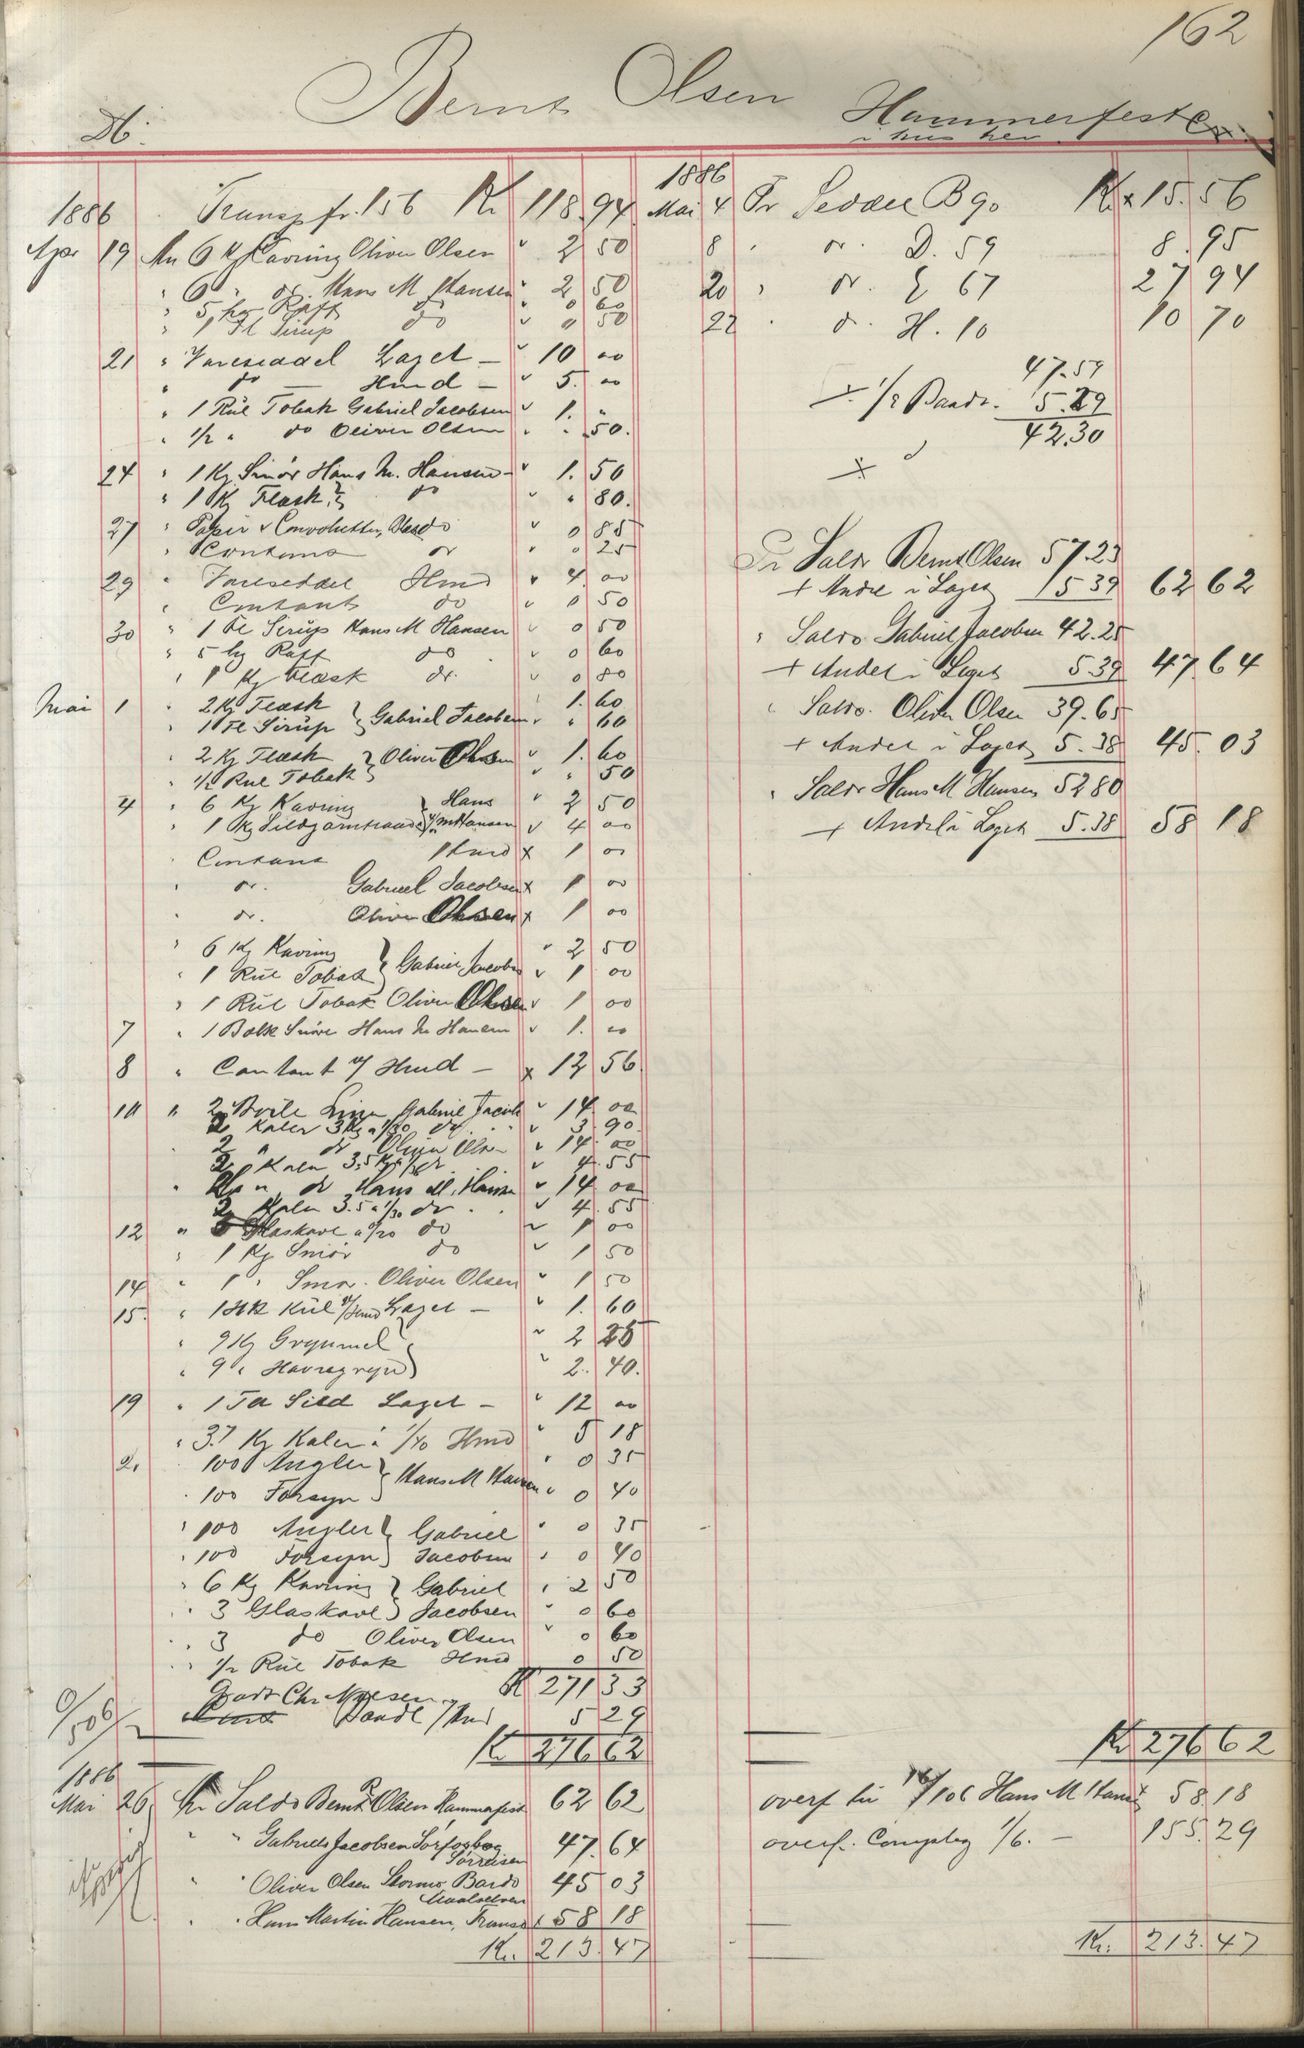 162
Bernt Olsen Hammerfest
i hus her
Db: Cr.
1886 Transp fr. 156 Kr 118.94
Apr 19 An 6 Kg Kavring Oliver Olsen " 2 50
" 6 " do. Hans M Hansen " 2 50
" 5 hg Kaff do " 0 60
" 1 Fl Sirup do " 0 50
21 " Vareseddel Laget — " 10 00
" do — Hmd — " 5. 00
" 1 Rul Tobak Gabriel Jacobsen " 1. "
" 1/2 " do Oliver Olsen " " 50.
24 " 1 Kg Smör Hans M. Hansen — " 1. 50
" 1 Kg Flæsk do " " 80.
27 " Papir & Convolutter, do " 0 85
" Contant do " 0 25
29 " Vareseddel Hmd " 4. 00
" Contant do " 0 50
30 " 1 Fl Sirup Hans M Hansen " 0 50
" 5 hg Kaff do " 0 60
" 1 Kg Flæsk do. " 0 80
Mai 1 " 2 Kg Flæsk } Gabriel Jacobsen 1. 60
" 1 Fl Sirup " " 60
" 2 Kg Flæsk } Oliver Olsen " 1. 60
" 1/2 Rul Tobak " " 50
4 " 6 Kg Kavring } Hans " 2 50
" 1 Kg Sildgarntraad M Hansen " 4 00
" Contant Hmd x 1 00
" do. Gabriel Jacobsen x 1 00
" do. Oliver Olsen x 1 00
" 6 Kg Kavring } Gabriel Jacobs " 2 50
" 1 Rul Tobak " 1 00
" 1 Rul Tobak Oliver Olsen " 1 00
7 " 1 Hans M Hansen " 1. 00
8 " Contant v/ Hmd — x 12 56
10 " 2 Line Gabriel Jacob " 14. 00
2 Kaler 3 Kg a 1/30 do. " 3. 90
2 " do Oliver Olsen " 14. 00
2 Kaler 3.5 Kg a 1/30 do " 4. 55
" do Hans M. Hansen " 14 00
2 Kaler 3.5 a 1/30 do " 4. 55
12 " 5 Glaskavl a 0/20 do " 1 00
" 1 Kg Smör do " 1 50
14 " 1 " Smör. Oliver Olsen " 1 50
15. " 1 Hk Kul v/ Hmd Laget — " 1. 60
" 9 Kg Grynmel } " 2 25
" 9 " Havregryn " 2. 40.
19 " 1 Td Sild Laget — " 12 00
" 3.7 Kg Kaler a 1/40 Hmd " 5 18
100 Angler } Hans M Hansen " 0 35
" 100 Forsyn " 0 40
" 100 Angler } Gabriel " 0 35
" 100 Forsyn Jacobsen " 0 40
" 6 Kg Kavring } Gabriel " 2 50
" 3 Glaskavl Jacobsen " 0 60
" 3 do Oliver Olsen " 0 60
" 1/2 Rul Tobak Hmd 0 50
K 271 33
Chr
5 29
Kr 276 62
1886
Mai 26 Pr Saldo Bernt Olsen, Hammerfest 62 62
" " Gabriel Jacobsen
Sørreisen 47. 64
" " Oliver Olsen Bardo
Maalselven 45 03
" " Hans Martin Hansen, Tranø x 58 18
Kr. 213. 47
1886
Mai 4 Pr Seddel B 90 Kr x 15. 56
8 " do. D. 59 8. 95
20 " do. E 67 27 94
22 " do. H. 10 10 70
47.59
÷ 1/2 Baads. 5.29
42.30
Pr Saldo Bernt Olsen 57.23
+ Andel i Laget 5 39 62 62
" Saldo Gabriel Jacobsen 42.25
+ Andel i Laget 5.39 47. 64
" Saldo. Oliver Olsen 39.65
+ Andel i Laget 5.38 45. 03
" Saldo Hans M Hansen 52 80
+ Andel i Laget 5.38 58 18
Kr 276 62
overf til 16/106 Hans M Hansen 58 18
overf. 1/6. — 155. 29
Kr. 213. 47